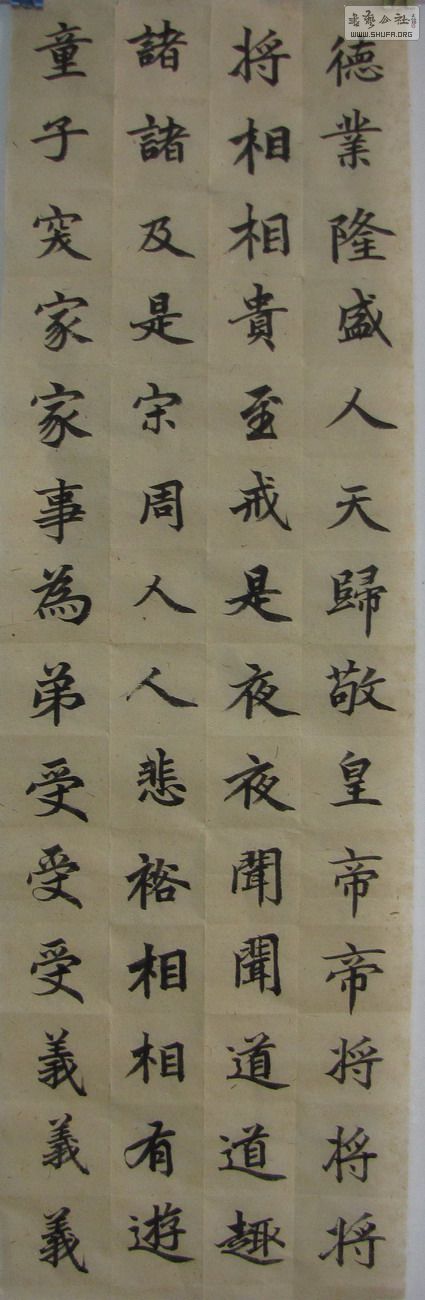 德業隆盛人天歸敬皇帝帝将将将
将相相貴至戒是夜夜聞聞道道趣
諸諸及是宋周人人悲裕相相有遊
童子突家家事為弟受受受義義義
書藝公社
WWW.SHUFA.ORG